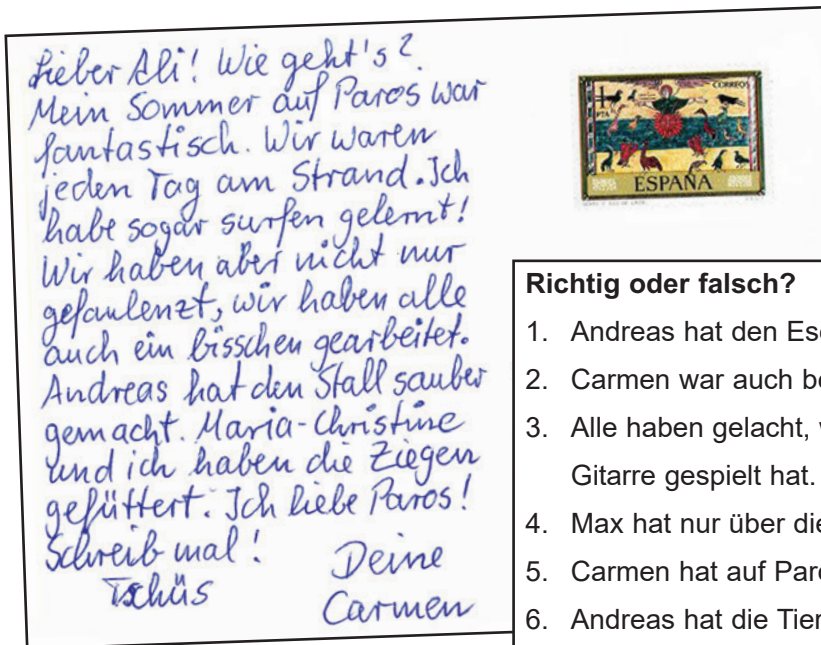 Lieber Ali! Wie geht's?
Mein Sommer auf Paros war
fantastisch. Wir waren
jeden Tag am Strand. Ich
habe sogar surfen gelernt!
Wir haben aber nicht nur
gefaulenzt, wir haben alle
auch ein bisschen gearbeitet.
Andreas hat den Stall sauber
gemacht. Maria-Christine
und ich haben die Ziegen
gefüttert. Ich liebe Paros!
Schreib mal!
Tschüs
Deine
Carmen
CORREOS
1
PTA
ESPAÑA
Richtig oder falsch?
1. Andreas hat den Es
2. Carmen war auch be
3. Alle haben gelacht,
Gitarre gespielt hat.
4. Max hat nur über die
5. Carmen hat auf Par
6. Andreas hat die Tier